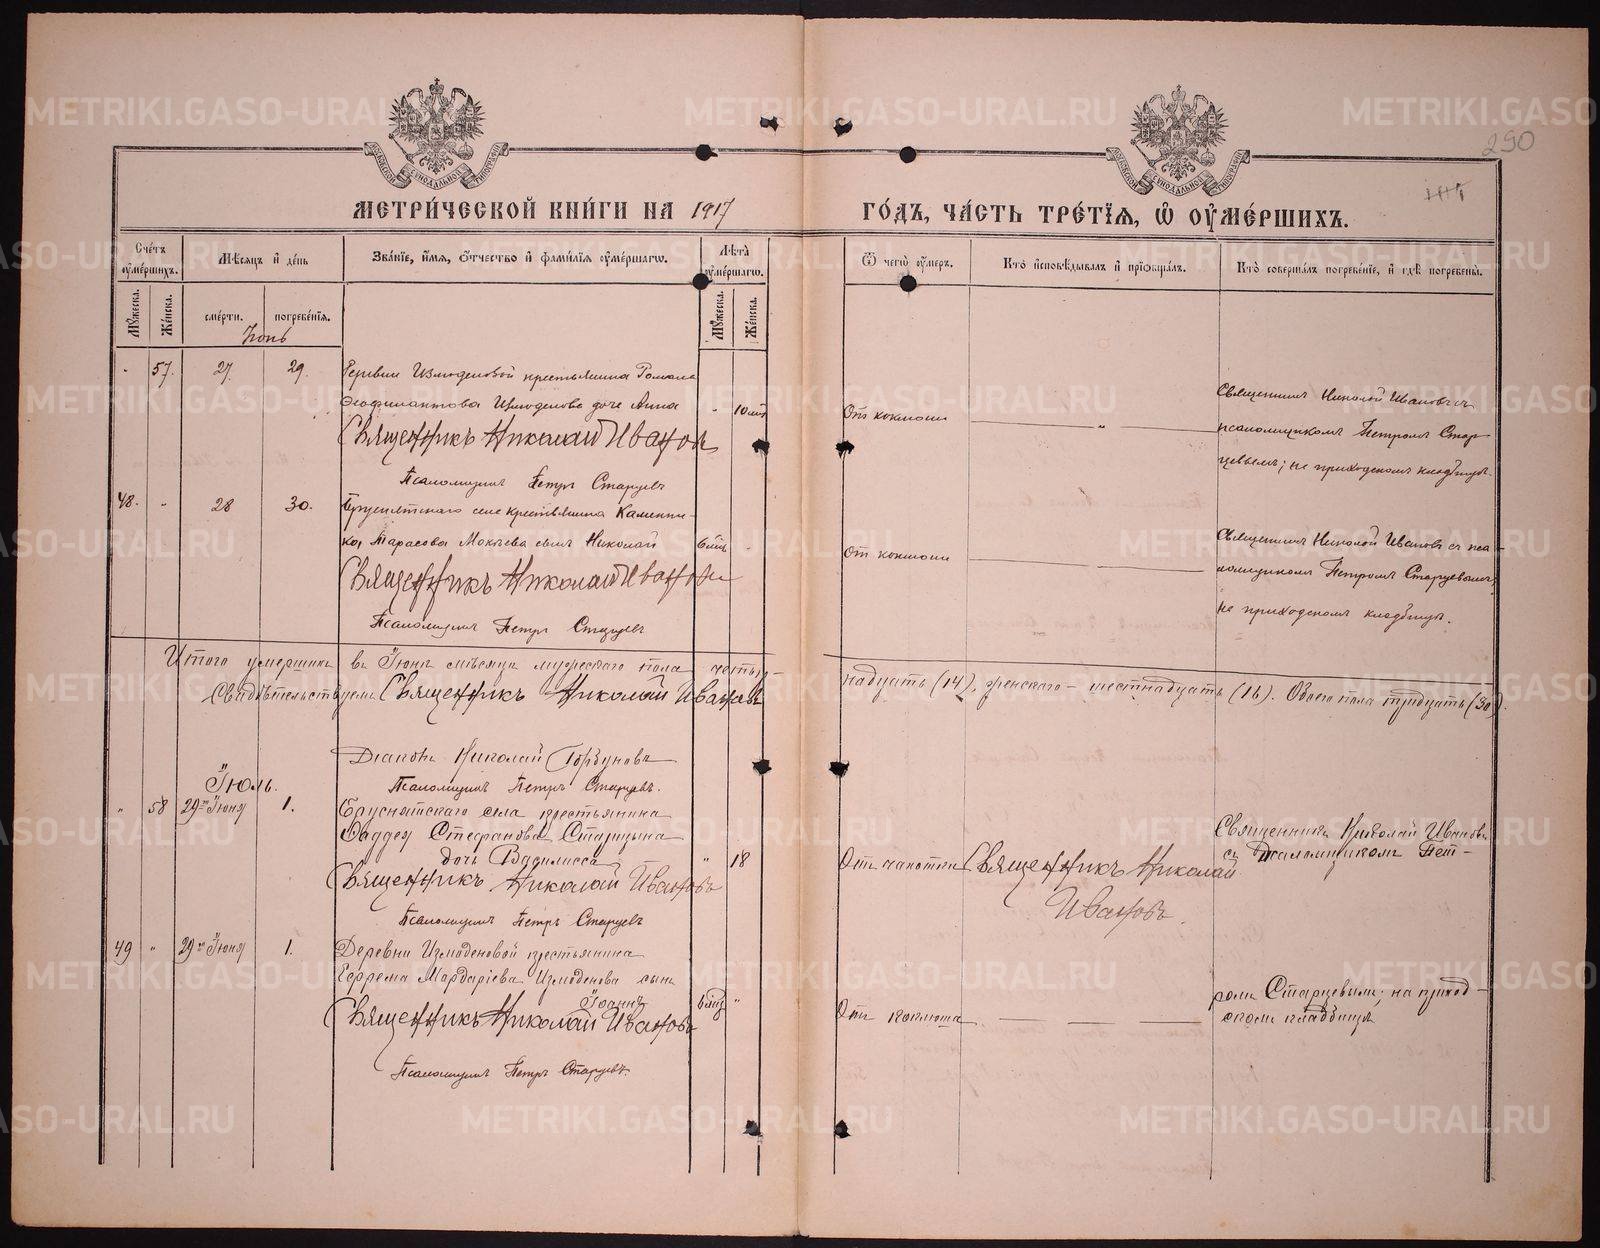 METRIKI.GASO-URAL.RU
290
МОСКОВСКОЙ СѴНОДАЛЬНОЙ ТИПОГРАФІИ
МЕТРИЧЕСКОЙ КНИГИ НА 1917
ГОДЪ, ЧАСТЬ ТРЕТІЯ, Ѡ ОУМЕРШИХЪ.
Счетъ оумершихъ.
Мѣсяцъ и день
Званіе, имя, отчество и фамилія оумершагѡ.
Лѣта оумершагѡ.
Ѿ чегѡ оумеръ.
Кто исповѣдывалъ и пріобщалъ.
Кто совершалъ погребеніе, и гдѣ погребены.
Мужеска.
Женска.
смерти.
погребенія.
Мужеска.
Женска.
Іюнь
57. 27. 29. Деревни Измоденовой крестьянина Романа
Феофилактова Измоденова дочь Анна " 10 лѣт
Священникъ Николай Ивановъ
Псаломщикъ Петръ Старцевъ
Отъ коклюша
Священникъ Николай Ивановъ съ
псаломщикомъ Петромъ Стар-
цевымъ; на приходскомъ кладбищѣ.
48. " 28 30. Бруснятскаго села крестьянина
ка, Тарасова Мокѣева сынъ Николай 6 мѣс
Священникъ Николай Ивановъ
Псаломщикъ Петръ Старцевъ
От коклюша
Священникъ Николай Ивановъ съ пса-
ломщикомъ Петромъ Старцевымъ;
на приходскомъ кладбищѣ.
Итого умершихъ въ Іюнѣ мѣсяцѣ мужескаго пола четыр-
надцать (14), женскаго – шестнадцать (16). Обоего пола тридцать (30).
Свидѣтельствуемъ: Священникъ Николай Ивановъ
Діаконъ Николай Горбуновъ
Псаломщикъ Петръ Старцевъ.
Іюль.
" 58 29го Іюня 1. Бруснятскаго села крестьянина
Фаддея Стефанова Старицына
дочь " 18
Священникъ Николай Ивановъ
Псаломщикъ Петръ Старцевъ
Отъ чахотки
Священникъ Николай
Ивановъ.
Священникъ Николай Ивановъ
съ псаломщикомъ Пет-
49 " 29го Іюня 1. Деревни Измоденовой крестьянина
Ефрема Мардаріева Измоденова сынъ
Іоаннъ "
Священникъ Николай Ивановъ
Псаломщикъ Петръ Старцевъ.
Отъ коклюша
ромъ Старцевымъ; на приход-
скомъ кладбищѣ